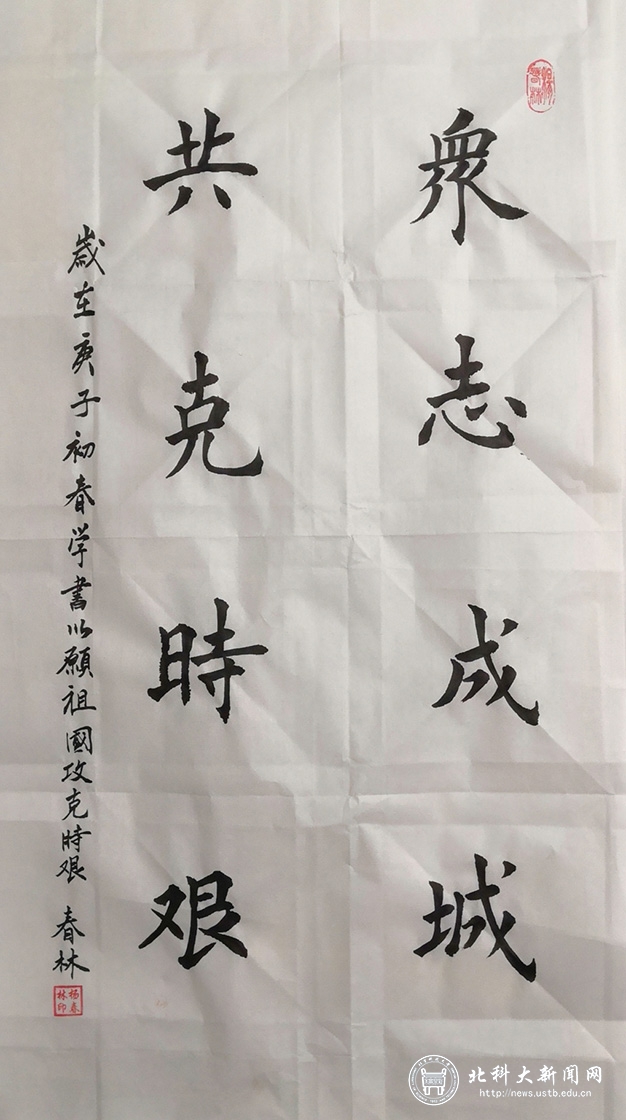 眾志成城
共克時艱
歲在庚子初春学書以願祖國攻克時艰 春林
杨春林印
北科大新闻网
http://news.ustb.edu.cn